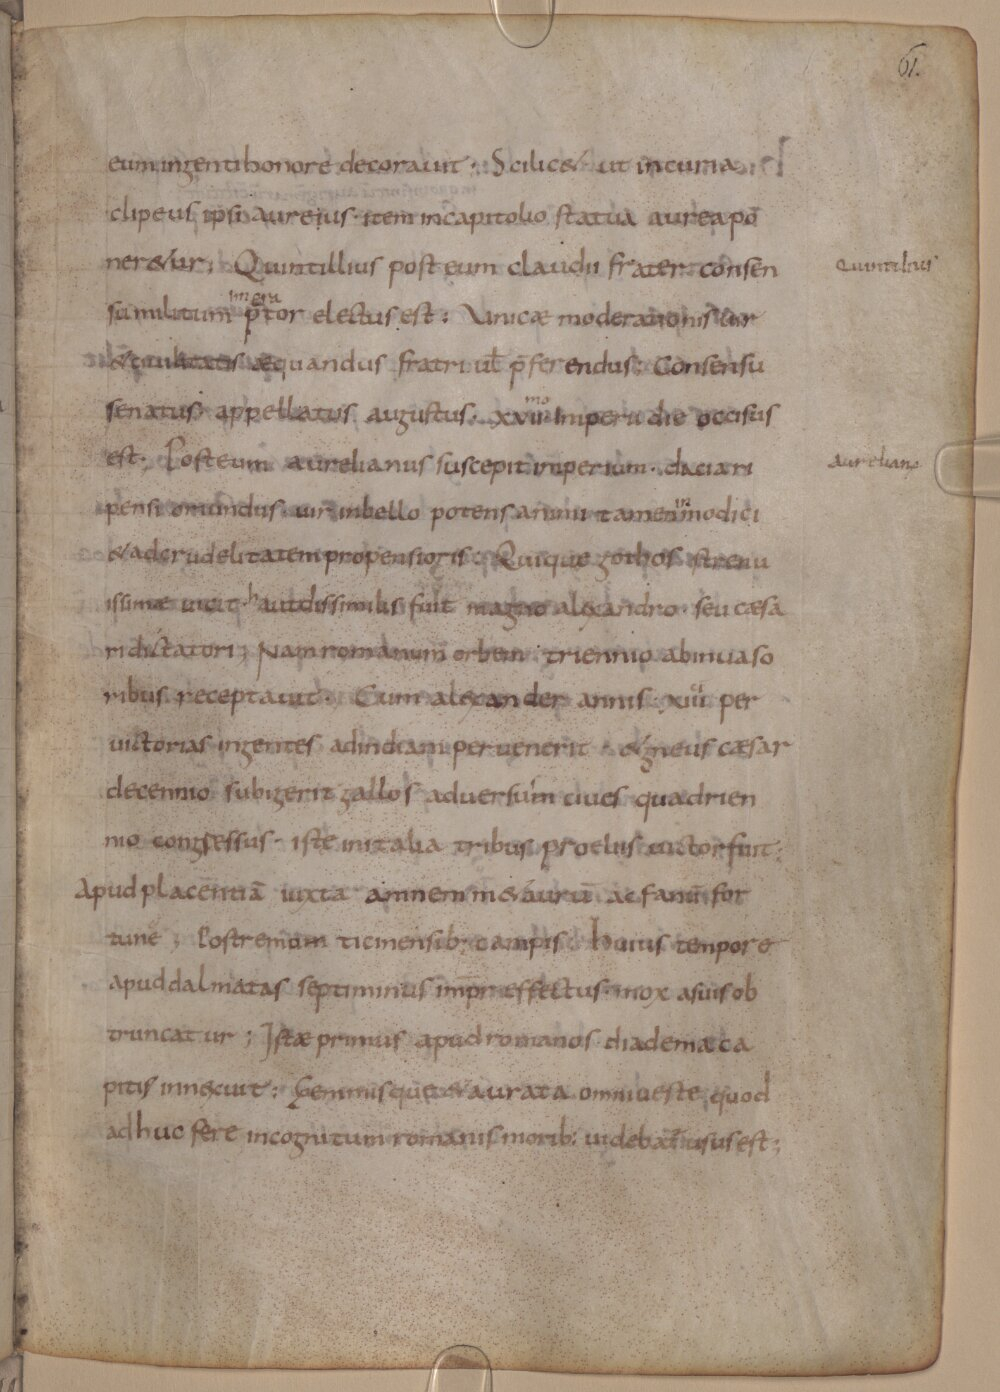 61.
eum ingenti honore decorauit. Scilic& ut in curia
clipeus ipsi aureius. item incapitolio statua aurea pō
ner&ur. Quintillius post eum claudii frater. consen
Quintilius
su militum imera p̄tor electus est: Unicæ moderationis uir
& ciuilitatis aequandus fratri ul̄ p̄ferendus: Consensu
senatus appellatus augustus. xvii mo imperii die occisus
est. Post eum aurelianus suscepit imperium. dacia ri
Aurelianˢ
pensi oriundus. uir in bello potens animi tamen inmodici
& ad crudelitatem propensioris. Quique gothos strenu
issime uicit. hautdissimilis fuit magno alexandro. seu cæsa
ri dictatori; Nam romanum orbem triennio ab inuaso
ribus receptauit. Cum alexander annis xiii per
uictorias ingentes ad indiam peruenerit. & gneus cæsar
decennio subigerit gallos aduersum ciues quadrien
nio congressus. iste in italia tribus proeliis uictor fuit.
Apud placentiā iuxta amnem m&aurū ac fanū for
tune; Postremum ticinensib; campis huius tempore
apud dalmatas septiminus imp̄r effectus. mox a suis ob
truncatur; Istæ primus apud romanos diadema ca
pitis innexuit: Gemmisque & aurata omni ueste quod
adhuc fere incognitum romanis morib; uidebat̄ usus est;